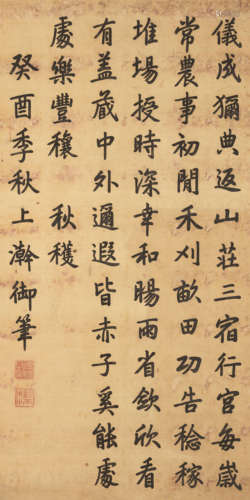 儀成獮典返山荘三宿行宮每歲
常農事初閒禾刈畝田功告稔稼
堆場授時深幸和暘雨省歛欣看
有盖蔵中外邇遐皆赤子奚能處
處樂豐穰 秋穫
癸酉季秋上澣御筆